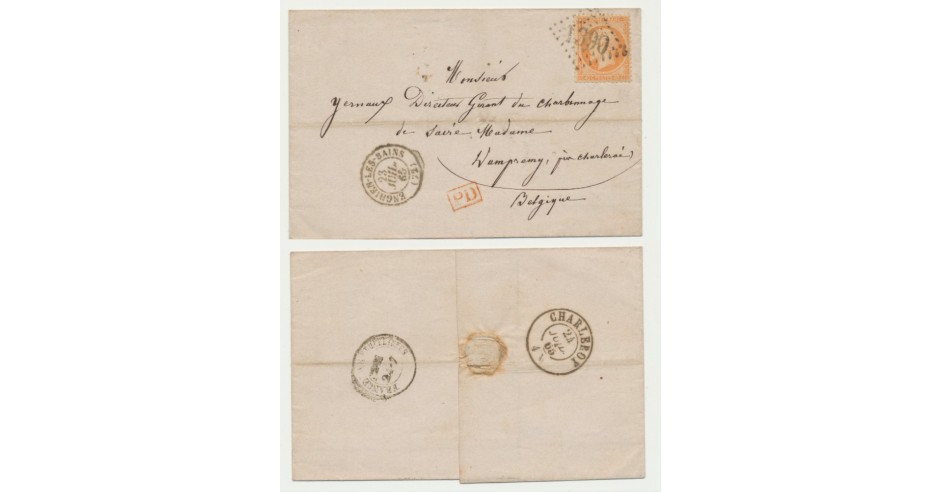 1390
Monsieur
Yernaux Directeur Gérant du Charbonnage
de Sacré Madame
Dampremy, par Charleroi
Belgique
ENGHIEN-LES-BAINS
23
JUIL
65
PD
CHARLEROY
24
JUIL
65
FRANCE